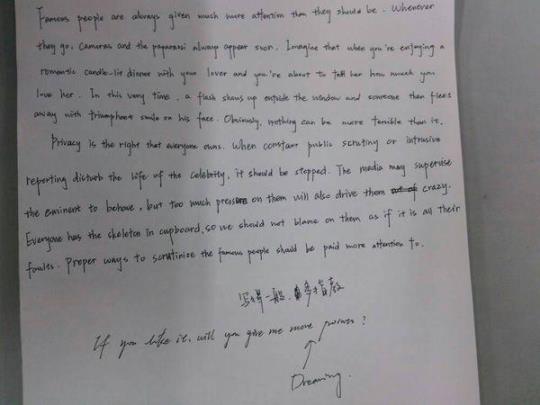 Famous people are always given much more attention than they should be. Whenever
they go, cameras and the paparazzi always appear soon. Imagine that when you're enjoying a
romantic candle-lit dinner with your lover and you're about to tell her how much you
love her. In this very time, a flash shows up outside the window and someone then flees
away with triumphant smile on his face. Obviously, nothing can be more terrible than it.
Privacy is the right that everyone owns. When constant public scrutiny or intrusive
reporting disturb the life of the celebrity, it should be stopped. The media may supervise
the eminent to behave, but too much pressure on them will also drive them crazy.
Everyone has the skeleton in cupboard, so we should not blame on them as if it is all their
foules. Proper ways to scrutinize the famous people should be paid more attention to.
写得一般、多指教
If you like it, will you give me more powers?
Dreaming.